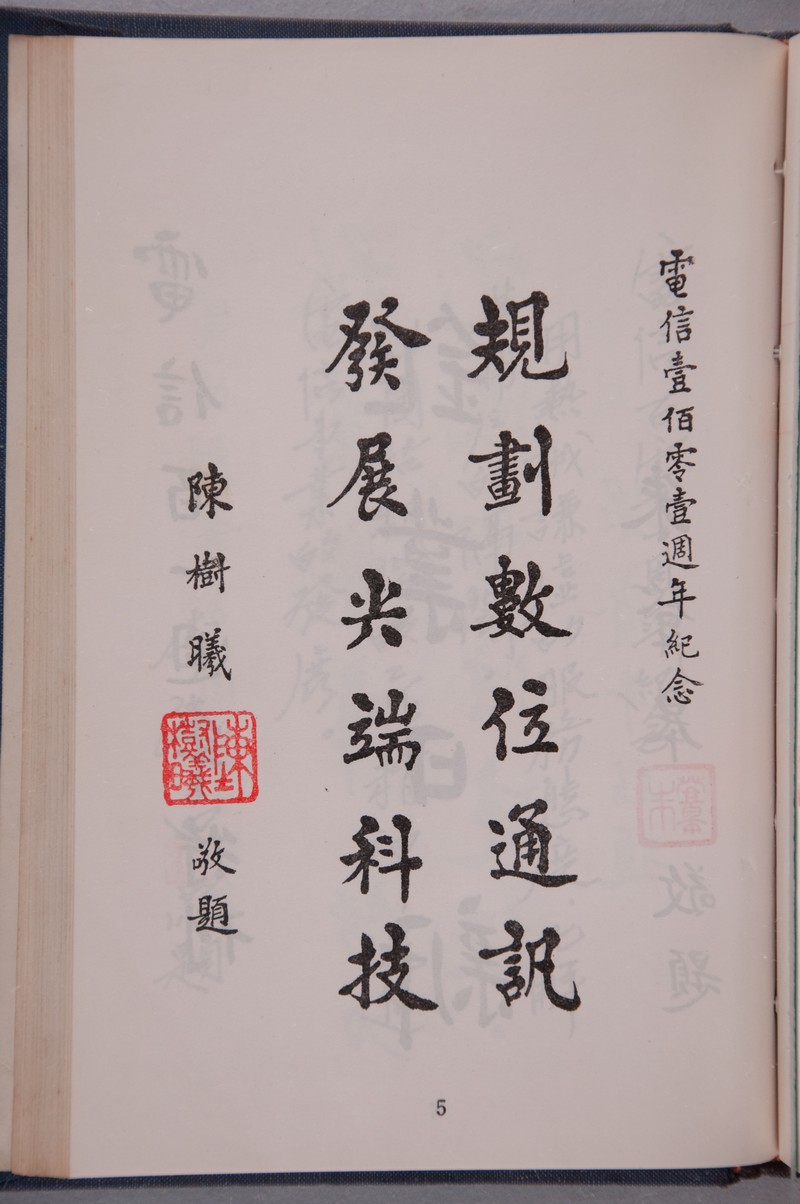 電信壹佰零壹週年紀念
規劃數位通訊
發展尖端科技
陳樹曦
陳樹曦
敬題
5